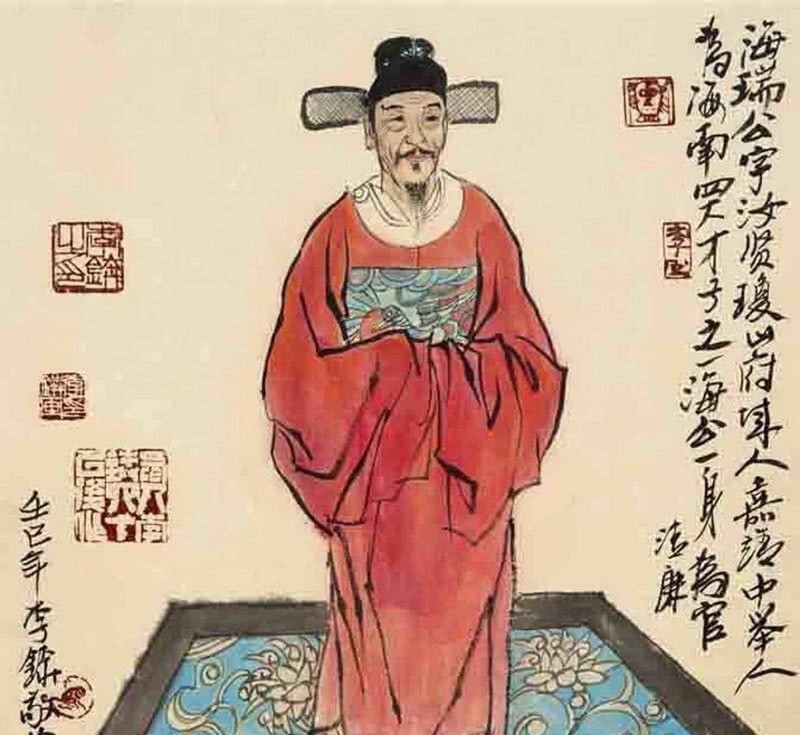 海瑞公字汝贤瓊山府城人嘉靖中举人
为海南四大才子之一海公一身為官
清廉
巳年李 敬